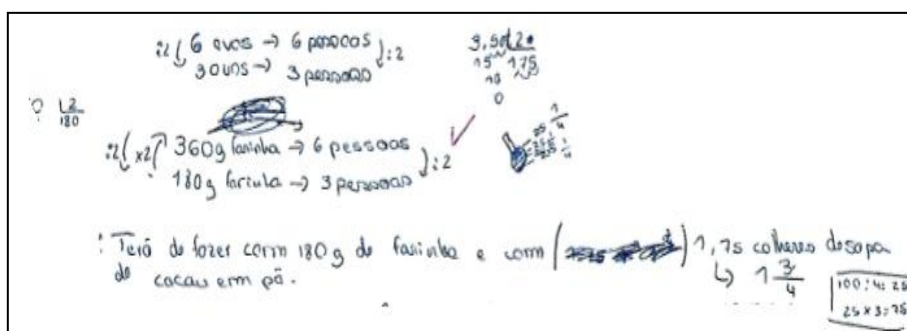 :2 ( 6 ovos → 6 pessoas ) :2
3 ovos → 3 pessoas
3,50 | 2
15 1,75
10
0
| 2
180
:2 ( x2 360g farinha → 6 pessoas ) :2
180g farinha → 3 pessoas
25 1/4
25 1/4
25 1/4
: Terá de fazer com 180 g de farinha e com ( ) 1,75 colheres de sopa
de cacau em pó.
↳ 1 3/4
100 : 4 = 25
25 x 3 = 75